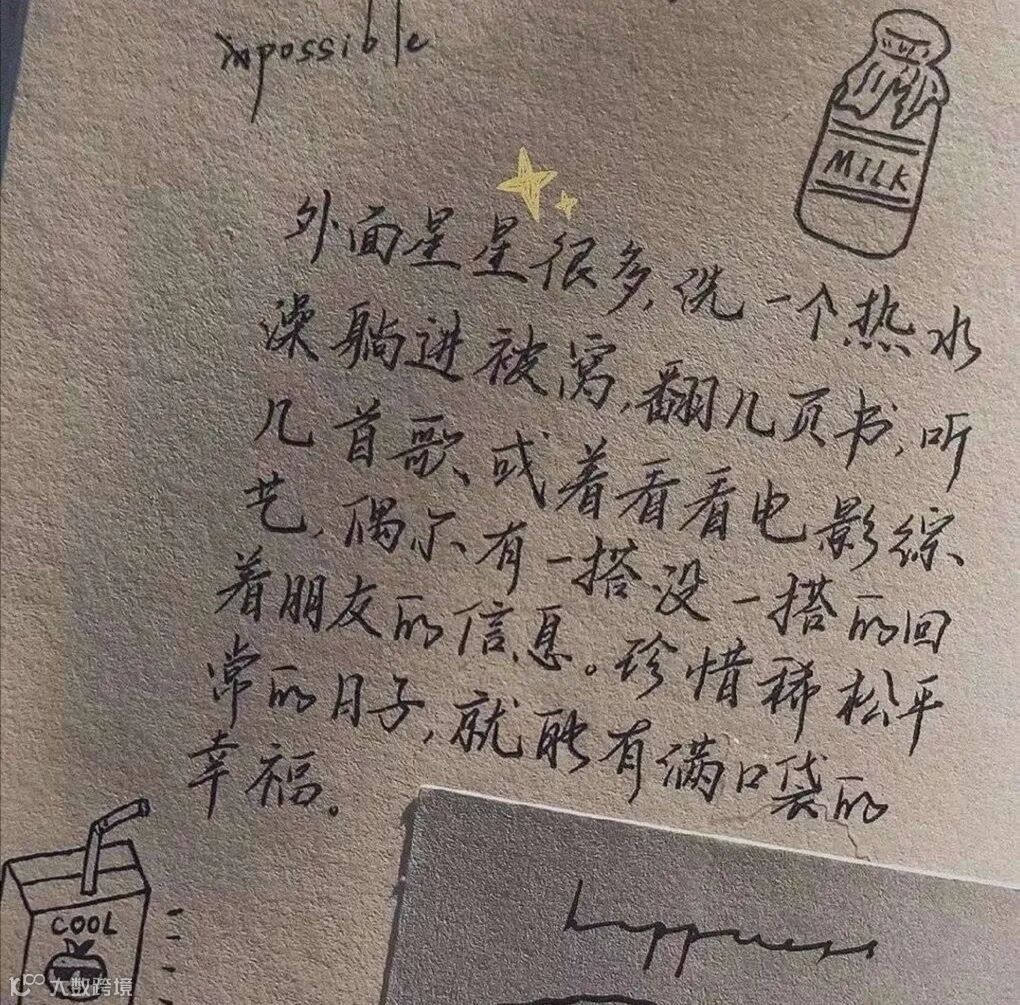 impossible
MILK
外面星星很多,洗一个热水
澡躺进被窝,翻几页书,听
几首歌、或着看看电影综
艺,偶尔有一搭没一搭的回
着朋友的信息。珍惜稀松平
常的日子,就能有满口袋的
幸福。
COOL
happiness
大数跨境